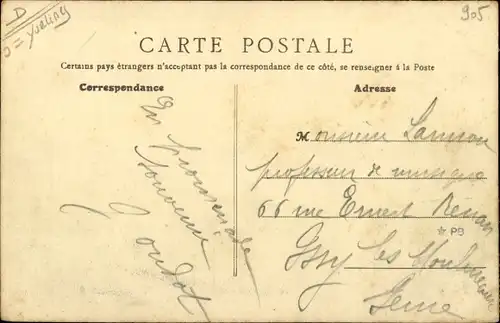 D
905
CARTE POSTALE
Certains pays étrangers n'acceptant pas la correspondance de ce côté, se renseigner à la Poste
Correspondance
Adresse
En promenade
souvenir
Monsieur
professeur de musique
66 rue Ernest Renan
PB
Issy les Moulineaux
Seine